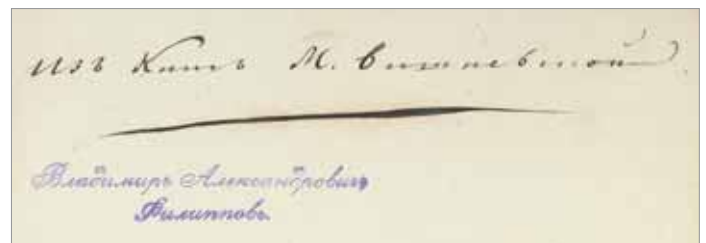 изъ Книгъ М. Вишневской.
Владимиръ Александровичъ
Филипповъ.